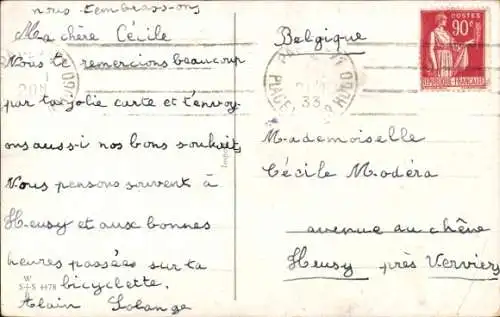 nous t'embrassons
Ma chère Cécile
Nous te remercions beaucoup
par ta jolie carte et t'envoy-
ons aussi nos bons souhaits
Nous pensons souvent à
Heusy et aux bonnes
heures passées sur ta
bicyclette.
Alain Solange
W
S+S 4478
Belgique
33
POSTES
90c
REPUBLIQUE FRANCAISE
Mademoiselle
Cécile Modéra
avenue du chêne
Heusy près Verviers